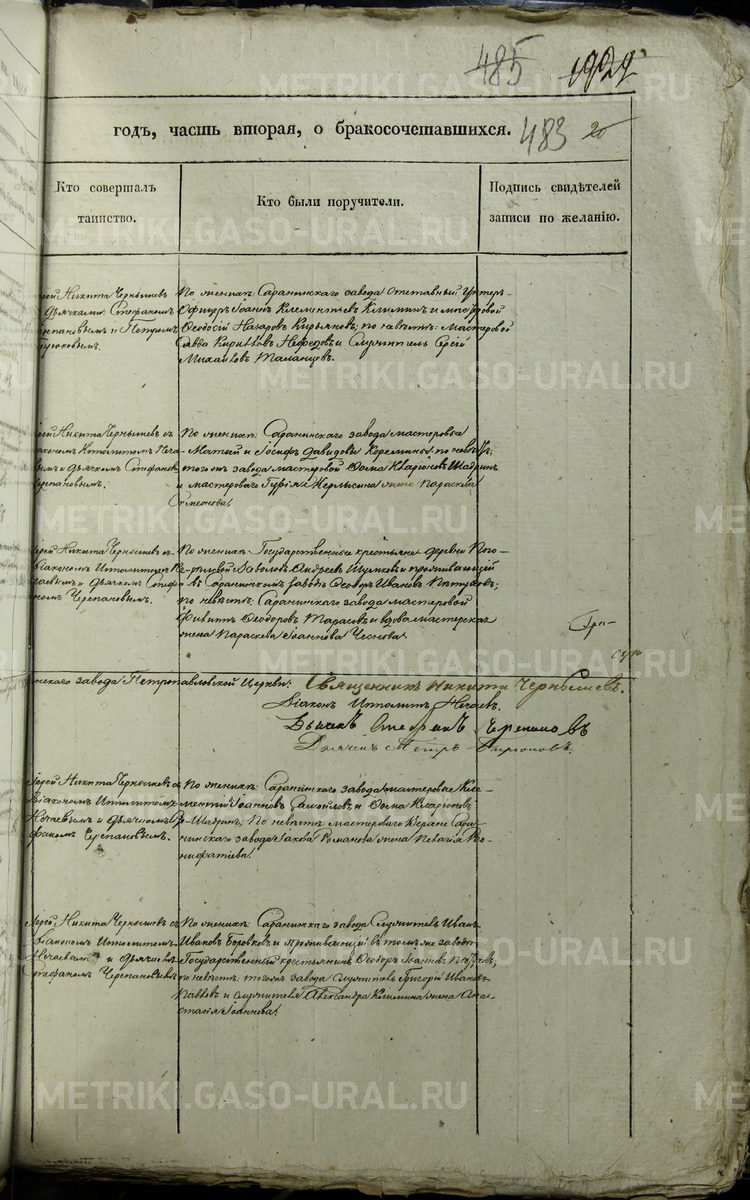 485 1929
годъ, часть вторая, о бракосочетавшихся. 483 20
Кто совершалъ таинство.
Кто были поручители.
Подпись свидѣтелей записи по желанію.
Никита Чернышевъ
Дьячками Стефаномъ
и Петромъ
По женихѣ: Саранинскаго завода отставный Унтеръ-
Офицеръ Іоаннъ Климентьевъ Климинъ и мастеровой
Ѳеодосій Назаровъ по невѣстѣ: Мастеровой
Савва Кириловъ Нефедовъ и Служитель Сергій
Михаиловъ Таланцевъ.
рей Никита Чернышевъ съ
Діакономъ Ипполитомъ Неча-
евымъ и Дьячкомъ Стефаномъ
Черепановымъ.
По женихѣ: Саранинскаго завода мастеровые
Матѳей и Іосифъ Давидовы по невѣстѣ:
того жъ завода мастеровой Ѳома Иларіоновъ Шадринъ
и мастероваго Гурія жена Параскева
Симеонова.
рей Никита Чернышевъ съ
Діакономъ Ипполитомъ Не-
чаевымъ и Дьячкомъ Стефа-
номъ Черепановымъ.
По женихѣ: Государственные крестьяне деревни
Андреевъ и проживающій
въ Саранинскомъ заводѣ Ѳеодоръ Ивановъ Пятуховъ;
по невѣстѣ: Саранинскаго завода мастеровой
Филиппъ Ѳеодоровъ Тарасовъ и вдова мастерская
жена Параскева Іоаннова Чеснова.
нскаго завода Петропавловской Церкви: Священникъ Никита Чернышевъ.
Діаконъ Ипполитъ Нечаевъ.
Дьячекъ Стефанъ Черепановъ
Дьячекъ Петръ
рей Никита Чернышевъ съ
Діакономъ Ипполитомъ
Нечаевымъ и Дьячкомъ Сте-
фаномъ Черепановымъ.
По женихѣ: Саранинскаго завода мастеровые Кли-
ментій Іоанновъ и Ѳома Иларіоновъ
Шадринъ; По невѣстѣ: мастероваго Сара-
нинскаго завода Іакова Романова жена Пелагія Во-
нифатіева.
рей Никита Чернышевъ съ
Діакономъ Ипполитомъ
Нечаевымъ и Дьячкомъ
Стефаномъ Черепановымъ
По женихѣ: Саранинскаго завода Служитель Иванъ
Ивановъ Боровковъ и проживающій въ томъ же заводѣ
Государственный крестьянинъ Ѳеодоръ Іоанновъ
по невѣстѣ: того жъ завода Служитель Григорій Ивановъ
Павловъ и служителя Александра Климина жена Ана-
стасія Іоаннова.
METRIKI.GASO-URAL.RU